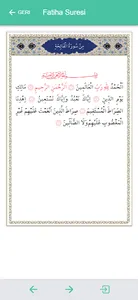 ← GERİ Fatiha Suresi
سُورَةُ الْفَاتِحَةِ
بِسْمِ اللَّهِ الرَّحْمَٰنِ الرَّحِيمِ
الْحَمْدُ لِلَّهِ رَبِّ الْعَالَمِينَ الرَّحْمَٰنِ الرَّحِيمِ مَالِكِ
يَوْمِ الدِّينِ إِيَّاكَ نَعْبُدُ وَإِيَّاكَ نَسْتَعِينُ إِهْدِنَا
الصِّرَاطَ الْمُسْتَقِيمَ صِرَاطَ الَّذِينَ أَنْعَمْتَ عَلَيْهِمْ غَيْرِ
الْمَغْضُوبِ عَلَيْهِمْ وَلَا الضَّالِّينَ